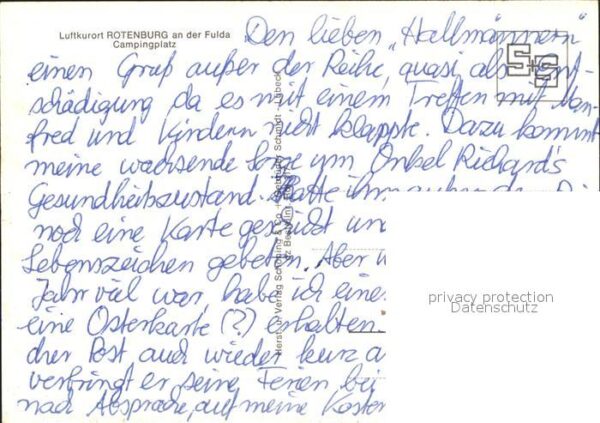 Luftkurort ROTENBURG an der Fulda
Campingplatz
Den lieben "Hallmännern"
einen Gruß außer der Reihe, quasi als Ent-
schädigung da es mit einem Treffen mit Man-
fred und Kindern nicht klappte. Dazu kommt
meine wachsende Sorge um Onkel Richard's
Gesundheitszustand. Hatte ihm außer der
noch eine Karte geschickt und
Lebenszeichen gebeten. Aber
Jahr viel war, habe ich eine
eine Osterkarte (?) erhalten.
der Post auch wieder kurz
verbringt er seine Ferien bei
nach Absprache, auf meine Kosten
Herst. u. Verlag Schöning & Co + Gebrüder Schmidt - Lübeck
S+S
privacy protection
Datenschutz